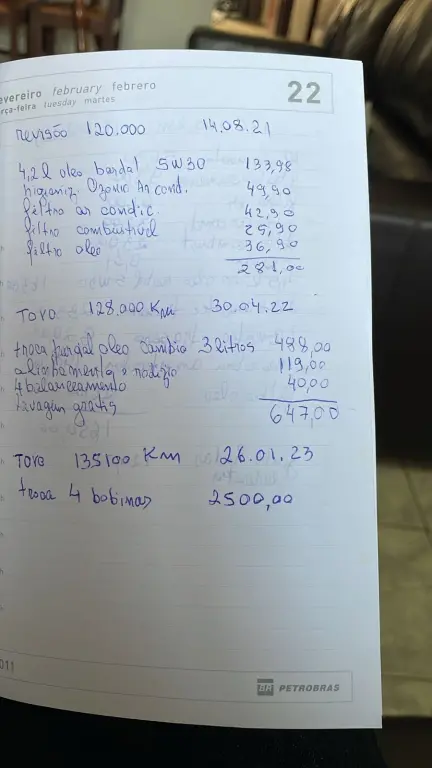 evereiro february febrero
rça-feira tuesday martes
22
Revisão 120.000 14.08.21
4,2 l oleo bardal 5W30 133,98
higieniz. Ozonio Ar cond. 49,90
filtro ar condic. 42,90
filtro combustivel 29,90
filtro oleo 36,90
281,00
TORO 128.000 Km 30.04.22
troca bardal oleo cambio 3 litros 488,00
alinhamento e rodizio 119,00
4 balanceamento 40,00
Lavagem grátis 647,00
TORO 135100 Km 26.01.23
troca 4 bobinas 2500,00
011
BR PETROBRAS